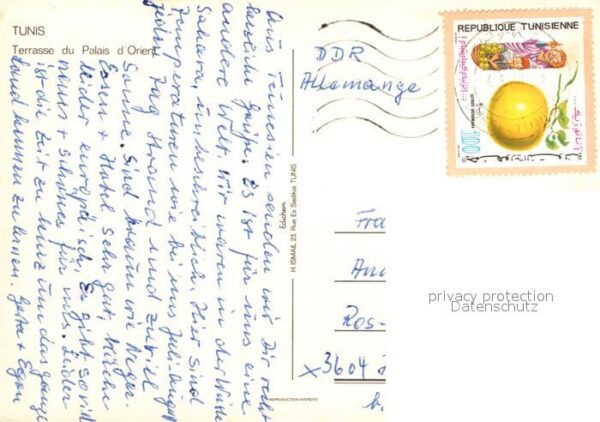 TUNIS
Terrasse du Palais d'Orient
Aus Tunesien senden wir Dir recht
herzliche Grüße. Es ist für uns eine
andere Welt. Wir waren in der Wüste
Sahara, unbeschreiblich. Hier sind
Temperaturen wie bei uns Juli-August
jeden Tag Strand und zuviel
Sonne. Sind braun wie Neger.
Essen + Hotel sehr gut. Küche
leider europäisch. Es gibt so viel
neues + schönes für uns. Leider
ist die Zeit zu kurz um das ganze
Land kennen zu lernen. Gesa + Egon
Edichem
H. ISMAIL 23, Rue Es Sadikia TUNIS
REPRODUCTION INTERDITE
DDR
Allemange
REPUBLIQUE TUNISIENNE
100
Fra
Ann
Ros-
x 3604
b.
privacy protection
Datenschutz